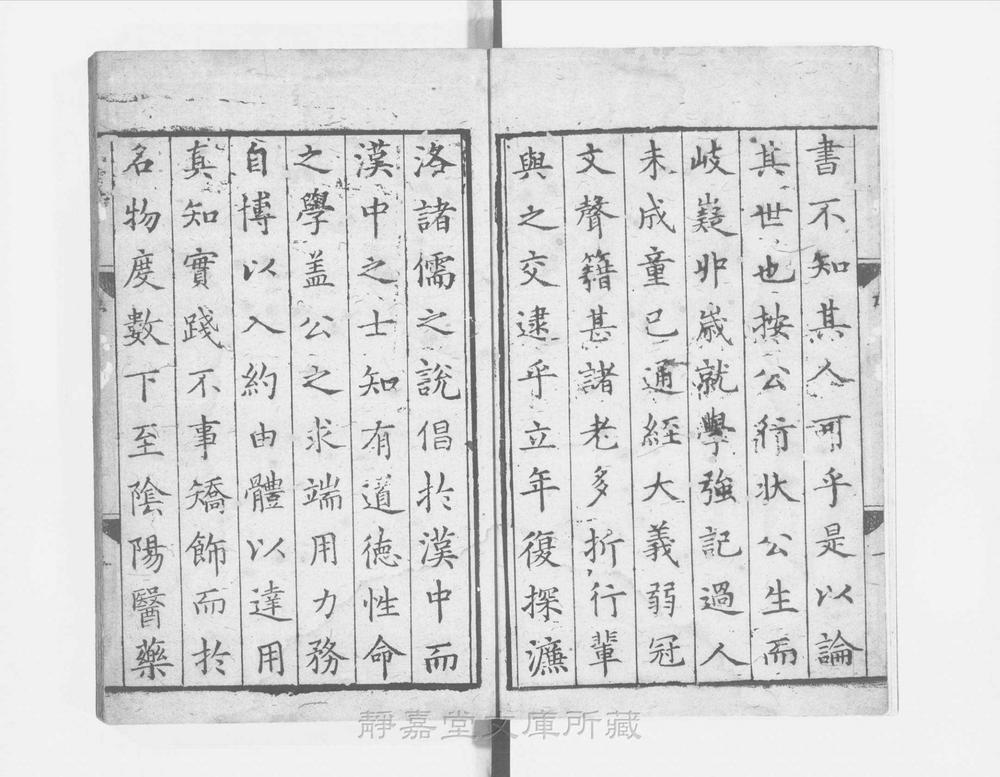 書不知其人可乎是以論
其世也按公行狀公生而
岐嶷丱歲就學強記過人
未成童已通經大義弱冠
文聲籍甚諸老多折行輩
與之交逮乎立年復探濂
洛諸儒之說倡扵漢中而
漢中之士知有道德性命
之學盖公之求端用力務
自博以入約由體以達用
真知實踐不事矯飾而扵
名物度數下至陰陽醫藥
靜嘉堂文庫所藏